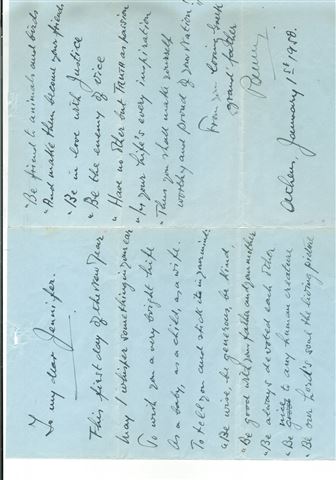 To my dear Jennifer.
This first day of the New Year
may I whisper something in your ear
To wish you a very bright life
As a baby, as a child, as a wife.
To tell you and stick in your mind:
"Be wise, be generous, be kind
"Be good with your father and your mother
"Be always devoted each other
"Be nice to any human creature
"Be our Lord's soul the living picture
"Be friend to animals and birds
"And make them become your friends
"Be in love with Justice
"Be the enemy of vice
"Have no other but TRUTH as passion
"In your life's every inspiration
"Thus you shall make yourself
worthy and proud of your station!
From your loving Greek
grand father
Athens, January 1st 1958.